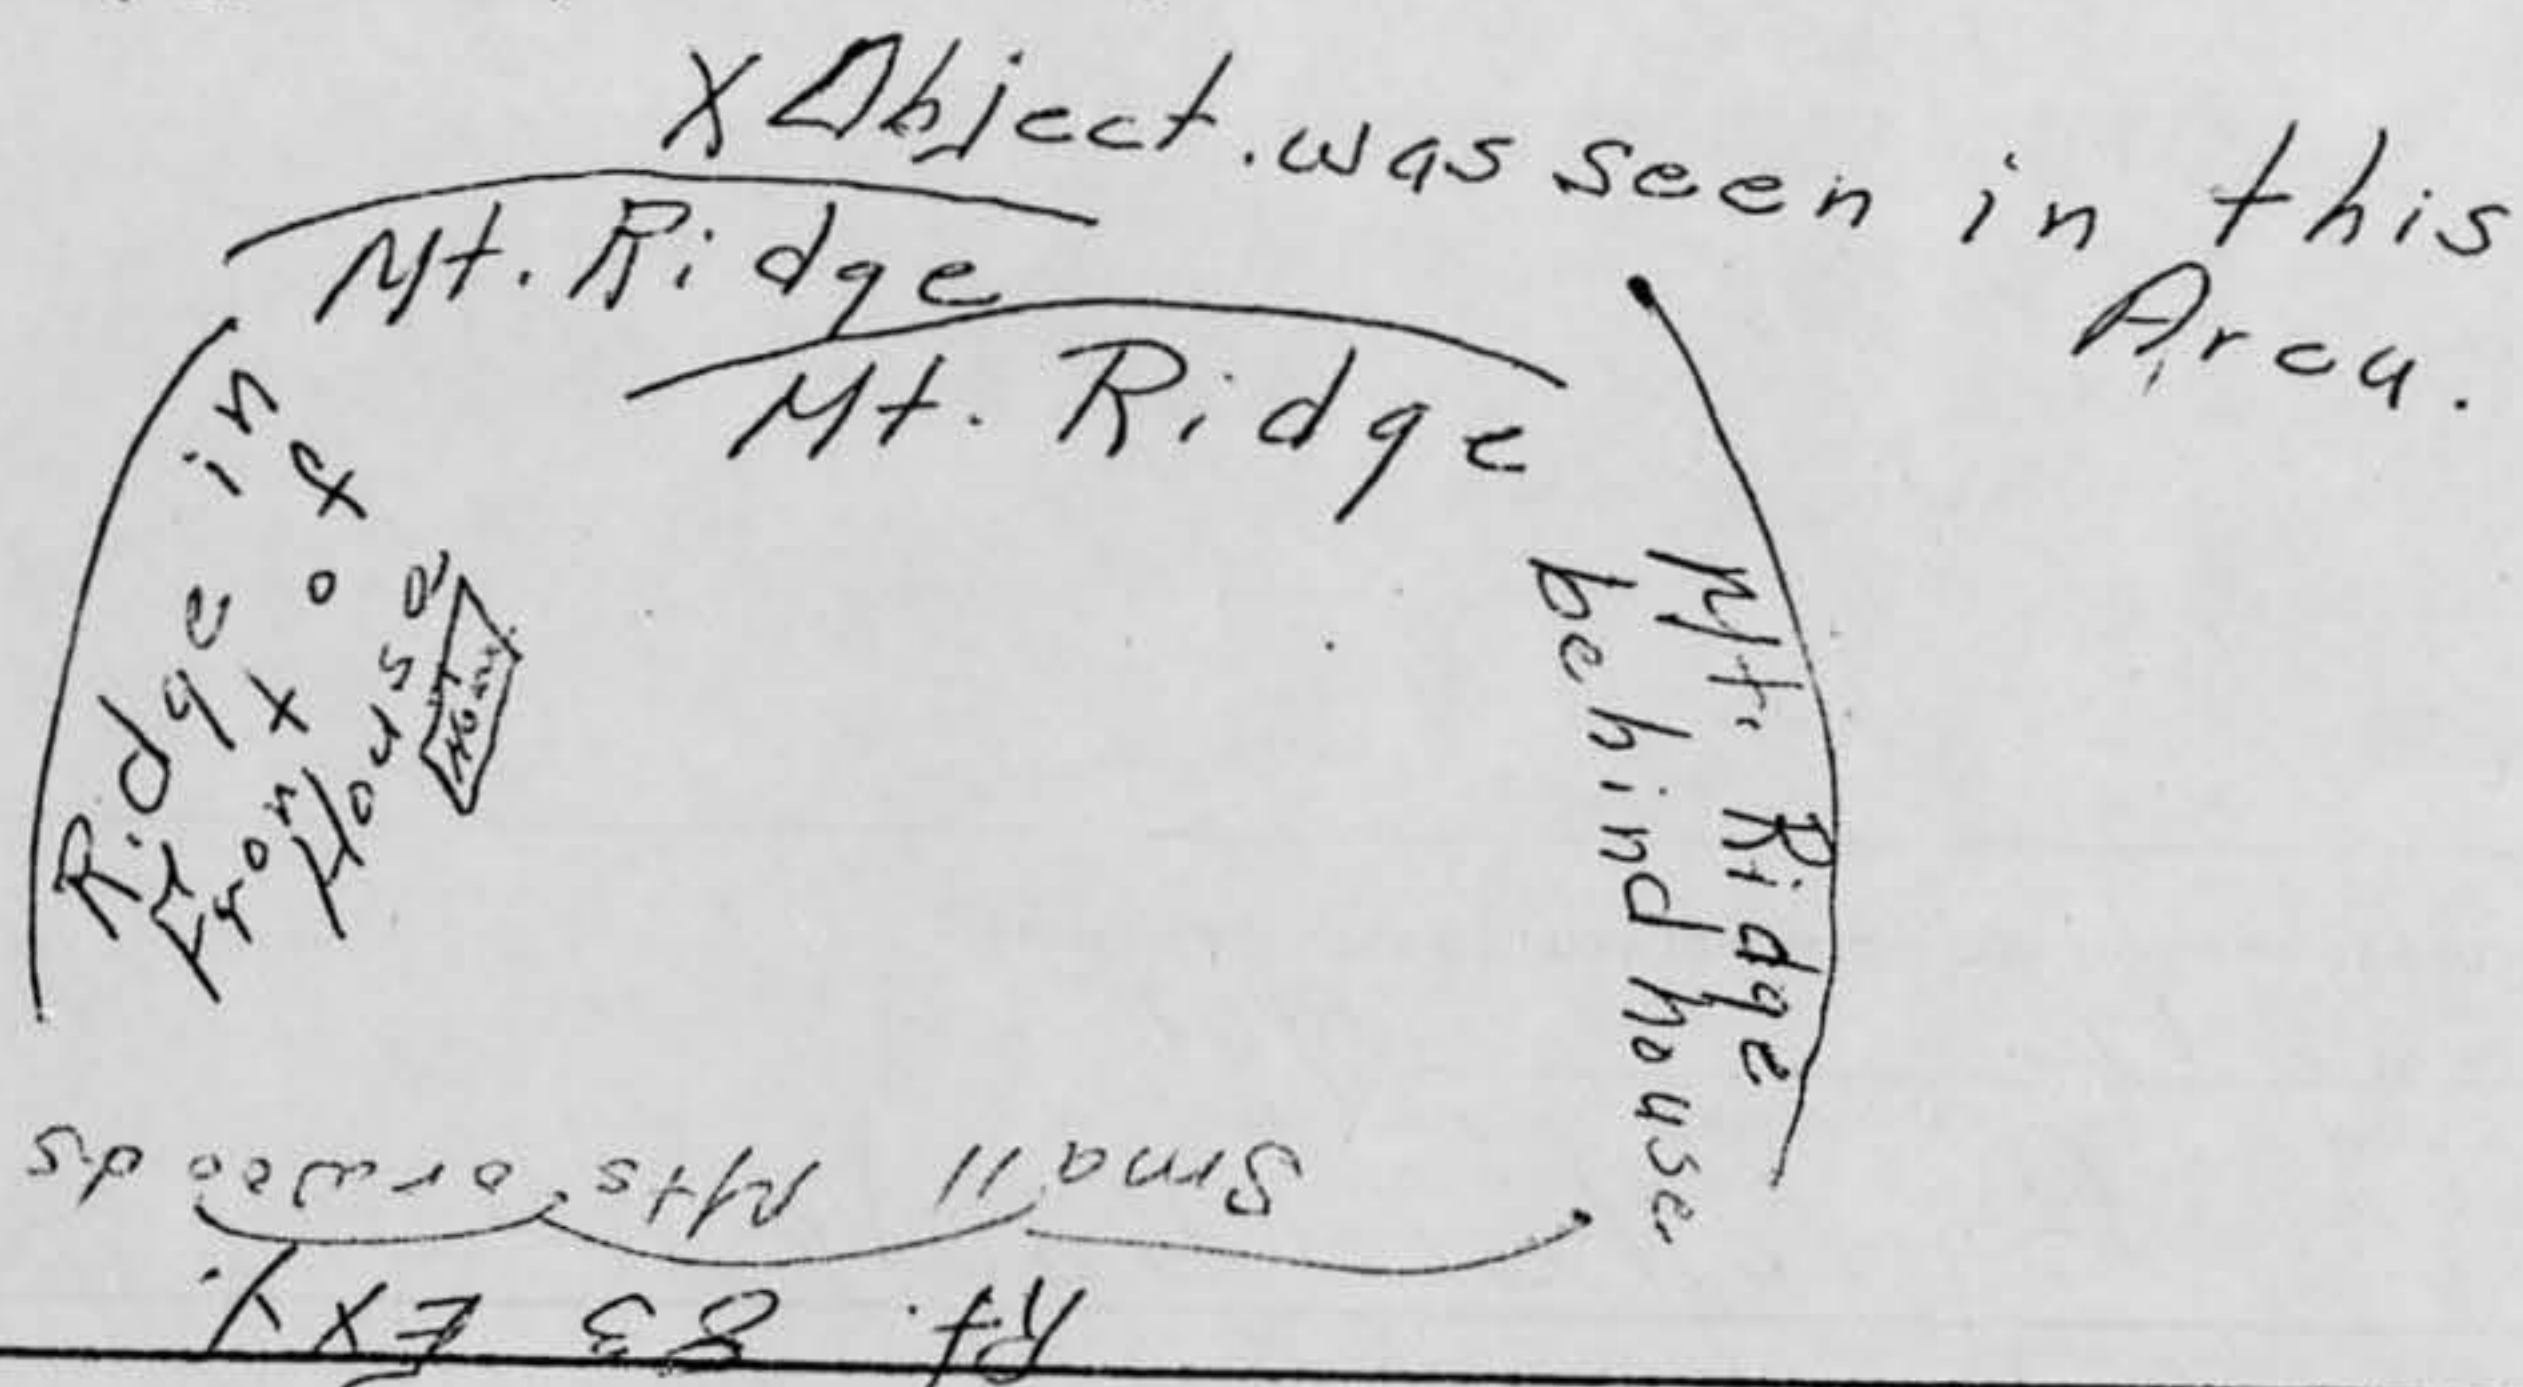 X Object was seen in this
Area.
Mt. Ridge
Mt. Ridge
Ridge in
Front of
House
Home
Mt. Ridge
behind house
Small Mts or woods
Rt. 83 Exy.